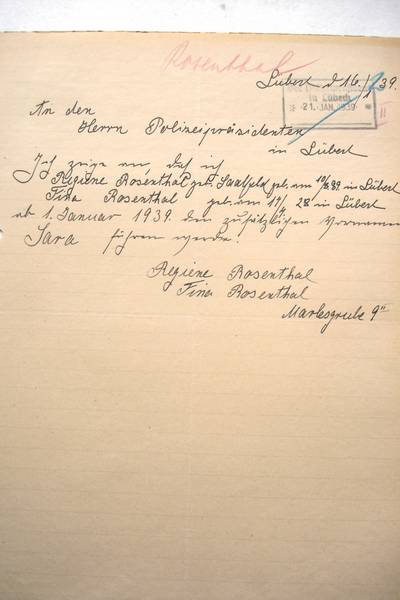 Rosenthal
Lübeck d 16./1. 39.
in Lübeck
* 21. JAN. 1939 *
An den
Herrn Polizeipräsidenten
in Lübeck
Ich zeige an, daß ich
Regiene Rosenthal geb. Saalfeld geb. am in Lübeck
Fina Rosenthal geb. am 28 in Lübeck
ab 1. Januar 1939. den zusätzlichen Vornamen
Sara führen werde.
Regiene Rosenthal
Fina Rosenthal
Marlesgrube 9 II